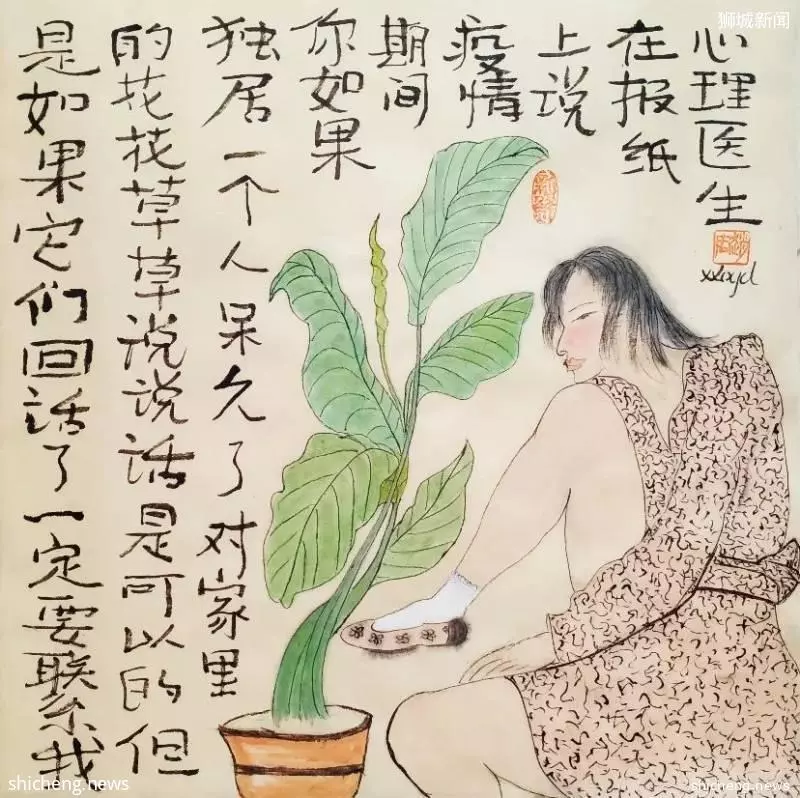 狮城新闻
心理医生
在报纸
上说
疫情
期间
你如果
独居一个人呆久了对家里
的花花草草说说话是可以的但
是如果它们回话了一定要联系我
shicheng.news
shicheng.news